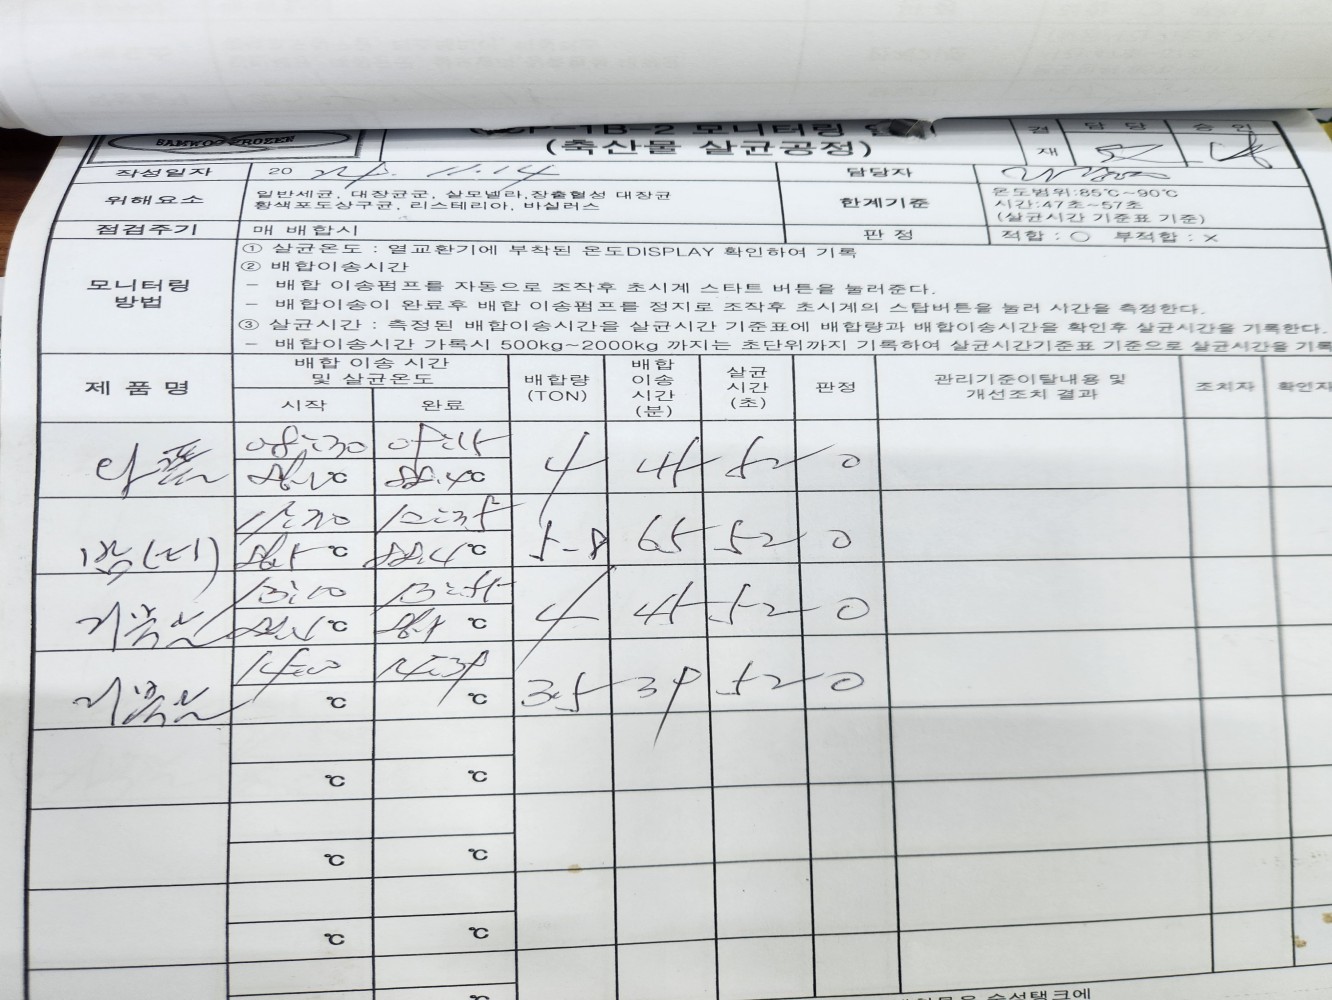 SAMWOO FROZEN
CP-1B-2 모니터링
(축산물 살균공정)
결재 담당 승인
작성일자 20 11.14 담당자
위해요소 일반세균, 대장균군, 살모넬라,장출혈성 대장균
황색포도상구균, 리스테리아, 바실러스
한계기준 온도범위:85℃~90℃
시간:47초~57초
(살균시간 기준표 기준)
점검주기 매 배합시 판 정 적합 : ○ 부적합 : ×
모니터링
방법
① 살균온도 : 열교환기에 부착된 온도DISPLAY 확인하여 기록
② 배합이송시간
- 배합 이송펌프를 자동으로 조작후 초시계 스타트 버튼을 눌러준다.
- 배합이송이 완료후 배합 이송펌프를 정지로 조작후 초시계의 스탑버튼을 눌러 시간을 측정한다.
③ 살균시간 : 측정된 배합이송시간을 살균시간 기준표에 배합량과 배합이송시간을 확인후 살균시간을 기록한다.
- 배합이송시간 가록시 500kg~2000kg 까지는 초단위까지 기록하여 살균시간기준표 기준으로 살균시간을 기록
제 품 명
배합 이송 시간
및 살균온도
시작 완료
배합량
(TON)
배합
이송
시간
(분)
살균
시간
(초)
판정
관리기준이탈내용 및
개선조치 결과
조치자
확인자
08:30 09:15 4 45 52 0
℃ 88.4℃
11:30 12:35 5.8 65 52 0
℃ 88.4℃
13:10 4 45 52 0
℃ ℃
14:00 14:39 3.5 39 52 0
℃ ℃
℃ ℃
℃ ℃
℃ ℃